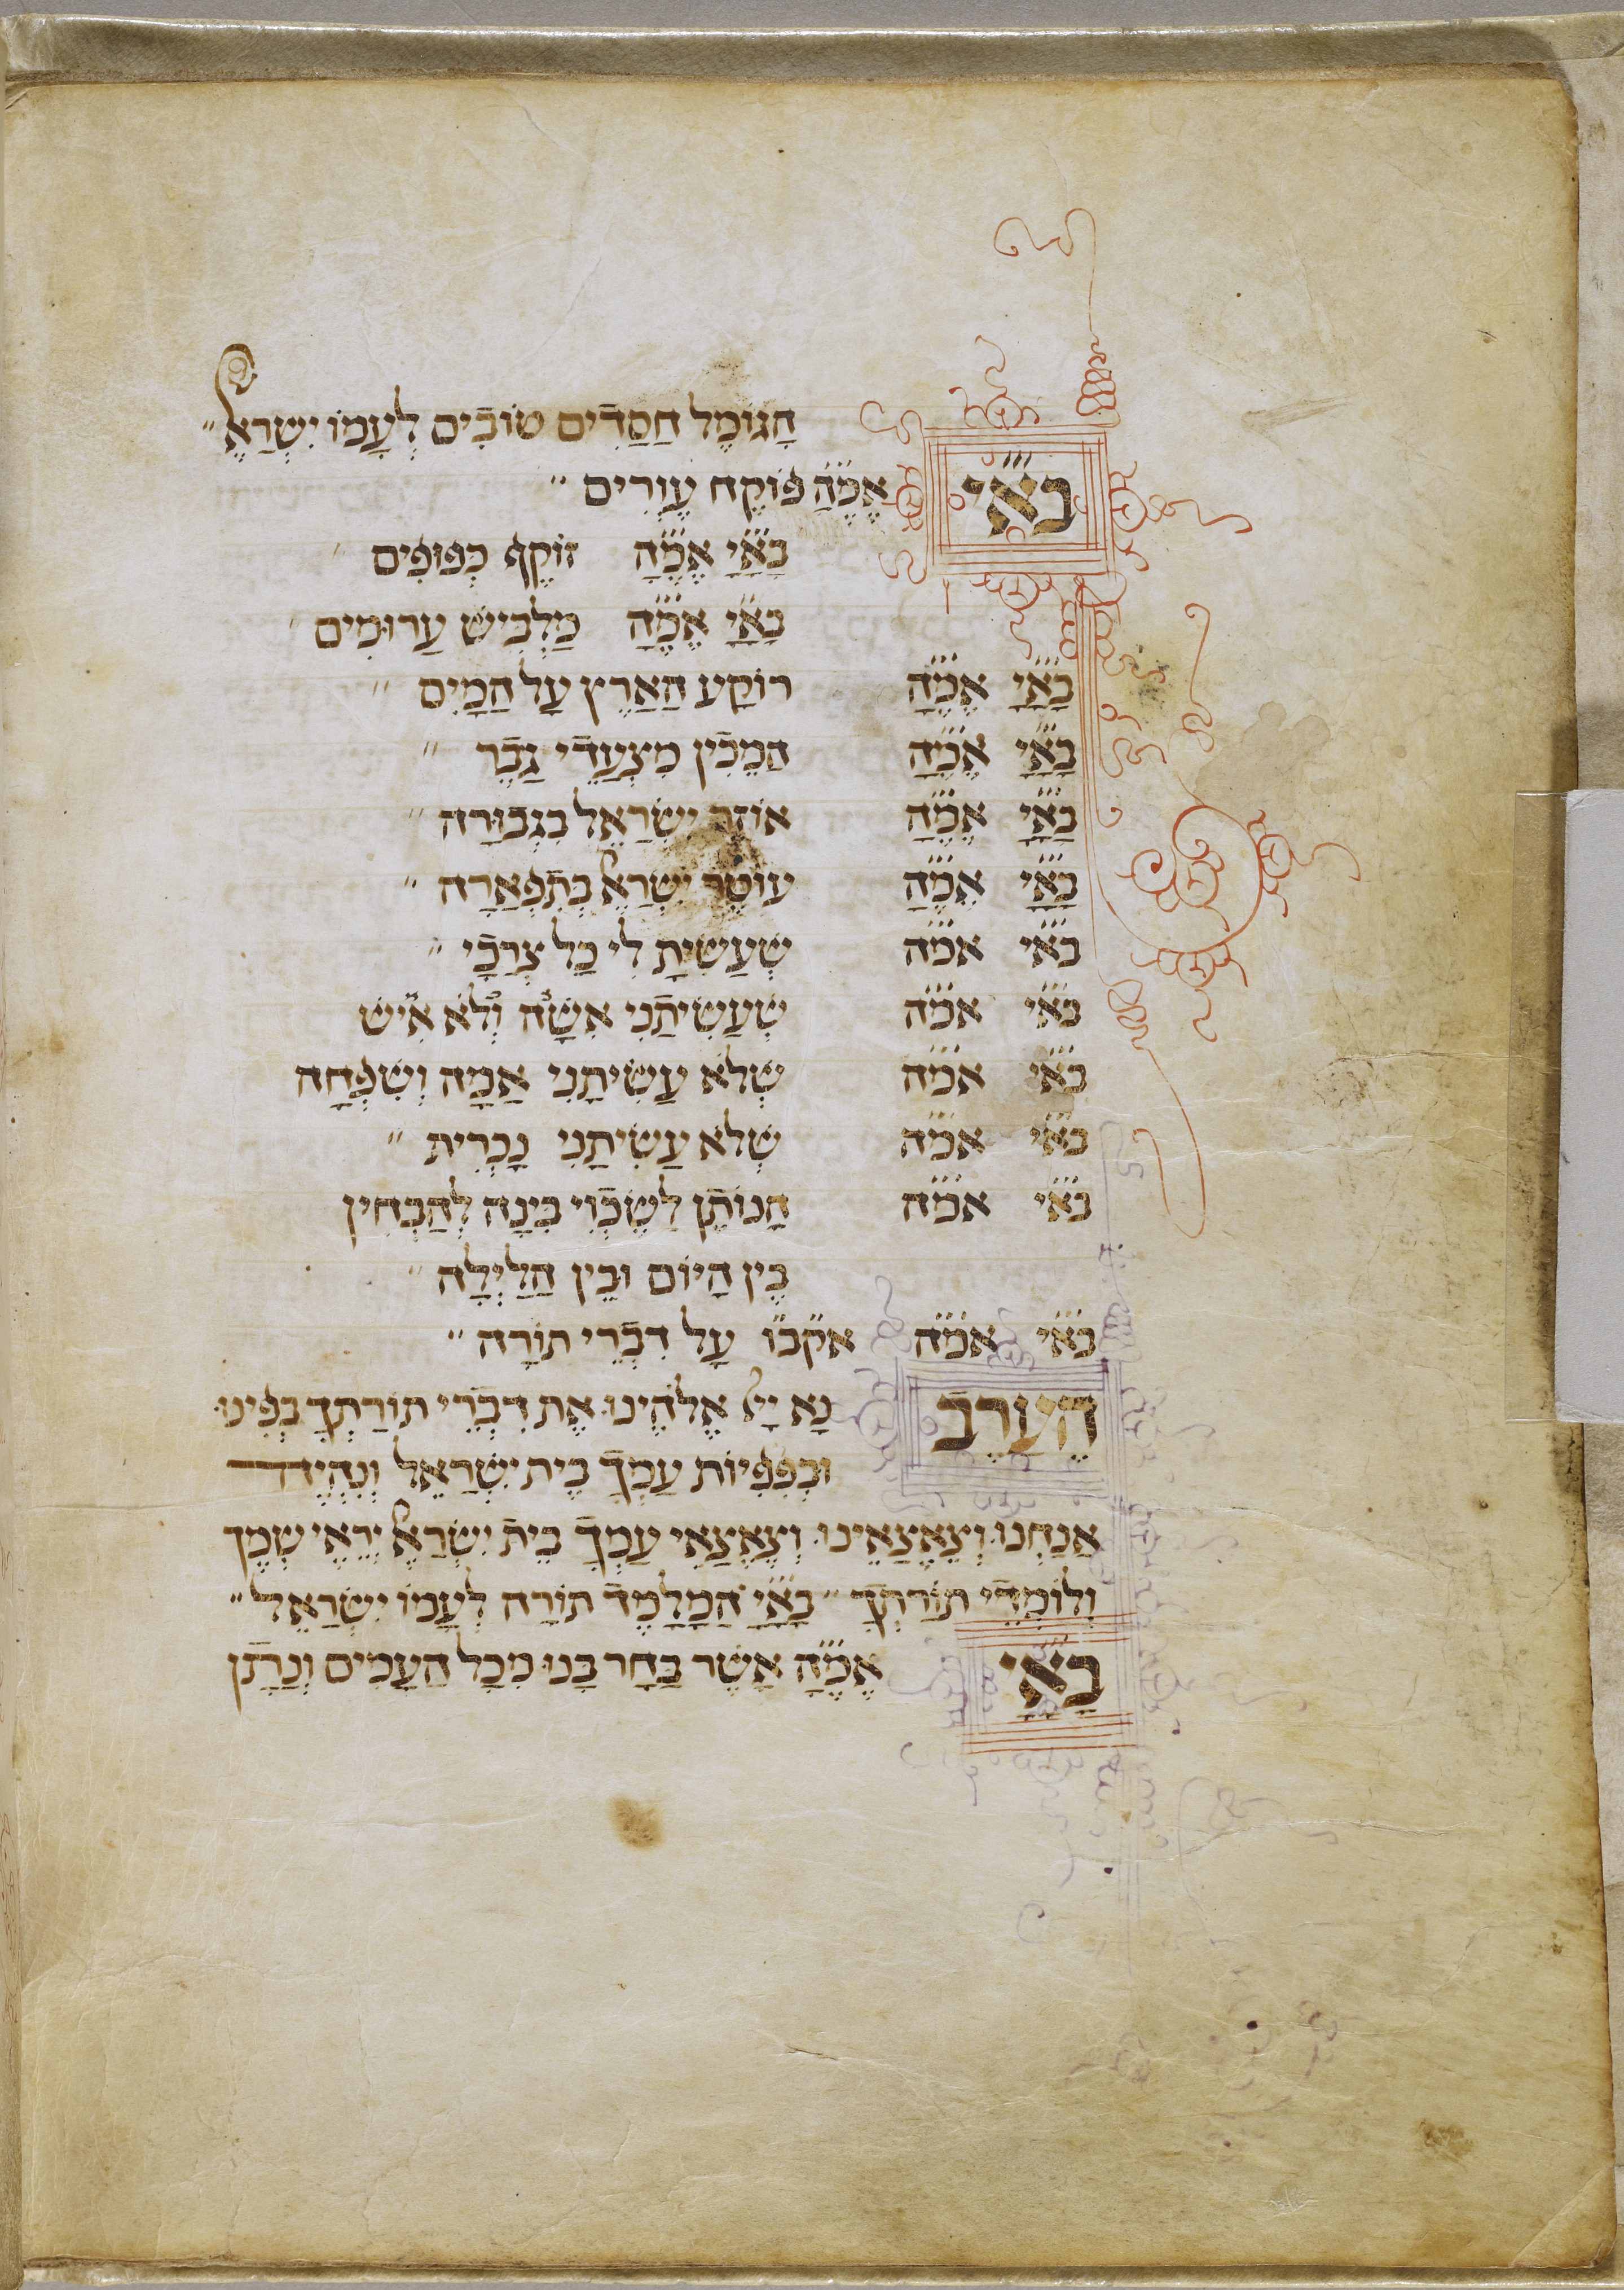 הַגּוֹמֵל חֲסָדִים טוֹבִים לְעַמּוֹ יִשְׂרָאֵל״
בָּאָ֞יָ אֱמֶ֞הָ פּוֹקֵחַ עִוְרִים״
בָּאָ֞יָ אֱמֶ֞הָ זוֹקֵף כְּפוּפִים
בָּאָ֞יָ אֱמֶ֞הָ מַלְבִּישׁ עֲרוּמִים
בָּאָ֞יָ אֱמֶ֞הָ רוֹקַע הָאָרֶץ עַל הַמָּיִם״
בָּאָ֞יָ אֱמֶ֞הָ הַמֵּכִין מִצְעֲדֵי גָבֶר״
בָּאָ֞יָ אֱמֶ֞הָ אוֹזֵר יִשְׂרָאֵל בִּגְבוּרָה״
בָּאָ֞יָ אֱמֶ֞הָ עוֹטֵר יִשְׂרָאֵל בְּתִפְאָרָה״
בא֞י אמ֞ה שֶׁעָשִׂיתָ לִי כָּל צְרָכָי״
בא֞י אמ֞ה שֶׁעֲשִׂיתַנִי אִשָּׁה וְלֹא אִישׁ
בא֞י אמ֞ה שֶׁלֹּא עֲשִׂיתַנִי אָמָה וְשִׁפְחָה
בא֞י אמ֞ה שֶׁלֹּא עֲשִׂיתַנִי נָכְרִית״
בא֞י אמ֞ה הַנּוֹתֵן לַשֶּׂכְוִי בִּינָה לְהַבְחִין
בֵּין הַיּוֹם וּבֵין הַלַּיְלָה״
בא֞י אמ֞ה אק֞בו עַל דִּבְרֵי תוֹרָה״
הַעֲרֵב נָא יְיָ אֱלֹהֵינוּ אֶת דִּבְרֵי תוֹרָתְךָ בְּפִינוּ
וּבְפִפִיּוֹת עַמְּךָ בֵּית יִשְׂרָאֵל וְנִהְיֶה
אֲנַחְנוּ וְצֶאֱצָאֵינוּ וְצֶאֱצָאֵי עַמְּךָ בֵּית יִשְׂרָאֵל יִרְאֵי שְׁמֶךָ
וְלוֹמְדֵי תוֹרָתְךָ״ בָּאָ֞יָ הַמְלַמֵּד תּוֹרָה לְעַמּוֹ יִשְׂרָאֵל״
בָּאָ֞יָ אֱמֶ֞הָ אֲשֶׁר בָּחַר בָּנוּ מִכָּל הָעַמִּים וְנָתַן